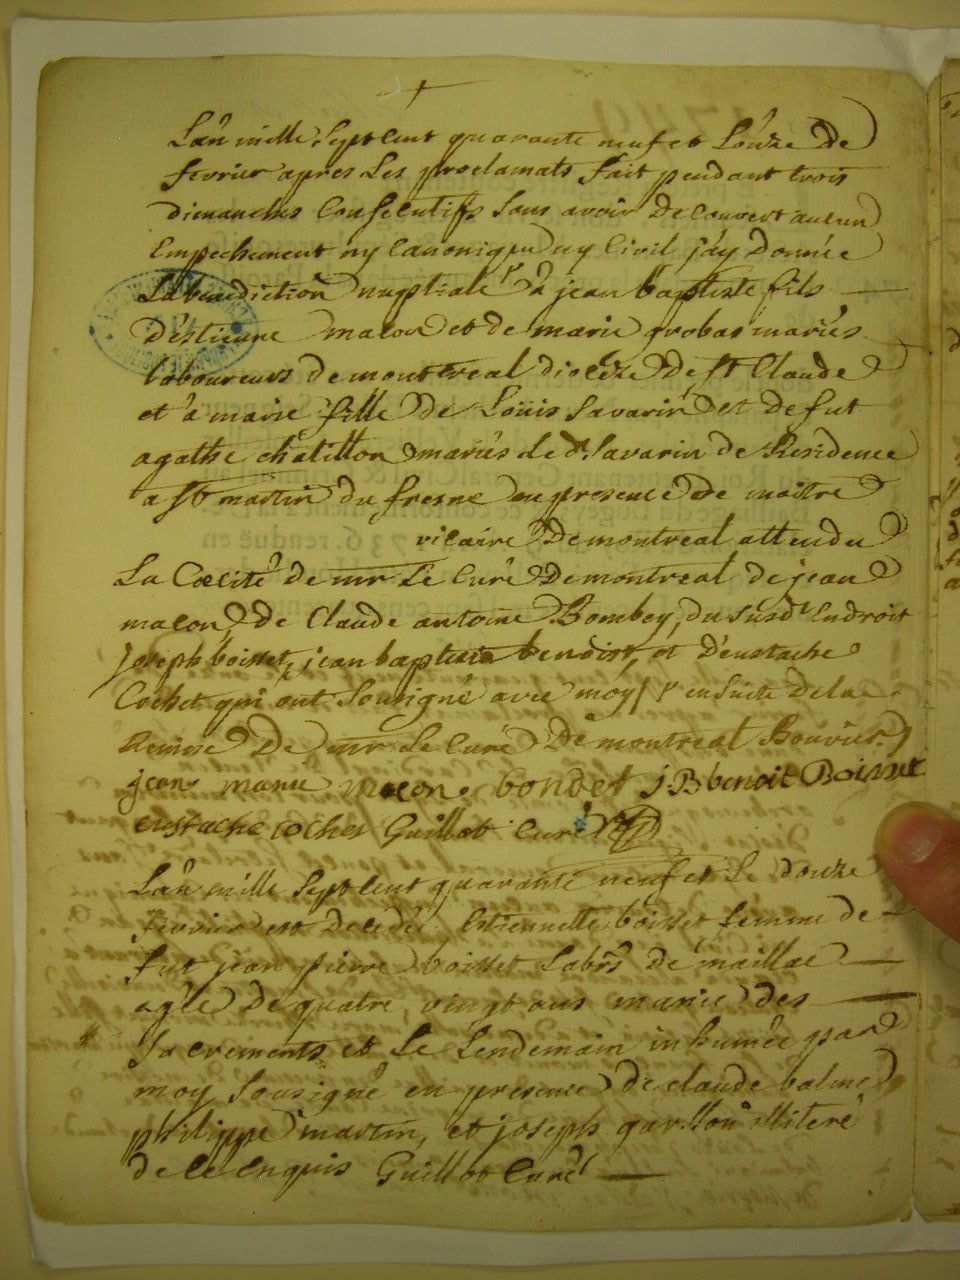 L'an mille sept cent quarante neuf et l'onze de
fevrier apres les proclamats fait pendant trois
dimanches consecutifs sans avoir decouvert aucun
empechement ny canonique ny civil j'ay donnée
la benediction nuptiale à jean baptiste fils
d'estienne macon et de marie grobas mariés
laboureurs de montreal diocéze de st Claude
et à marie fille de Loüis Savarin et de fut
agathe chatillon mariés le d. Savarin de Residence
a st martin du fresne en presence de maitre
vicaire de montreal attendu
La Cœcité de mr Le Curé de montreal de jean
macon de Claude antoine Bombey, du susdt endroit
joseph boisset, jean baptiste benoist, et d'eustache
Cochet qui ont sousigné avec moy / ensuite de la
Remise De mr Le Curé De montreal Bouvier.
jean marie macon bondet j B benoit Boisset
eustache cochet Guillot Curé
L'an mille sept cent quarante neuf et le douze
fevrier est decedé Estiennette boisset femme de
fut jean pierre boisset labrs de maillac
agée de quatre vingt ans munie des
sacrements et le Lendemain inhumée par
moy sousigné en presence de claude balme
philippe martin, et joseph garillon illiteré
de ce enquis Guillot Curé